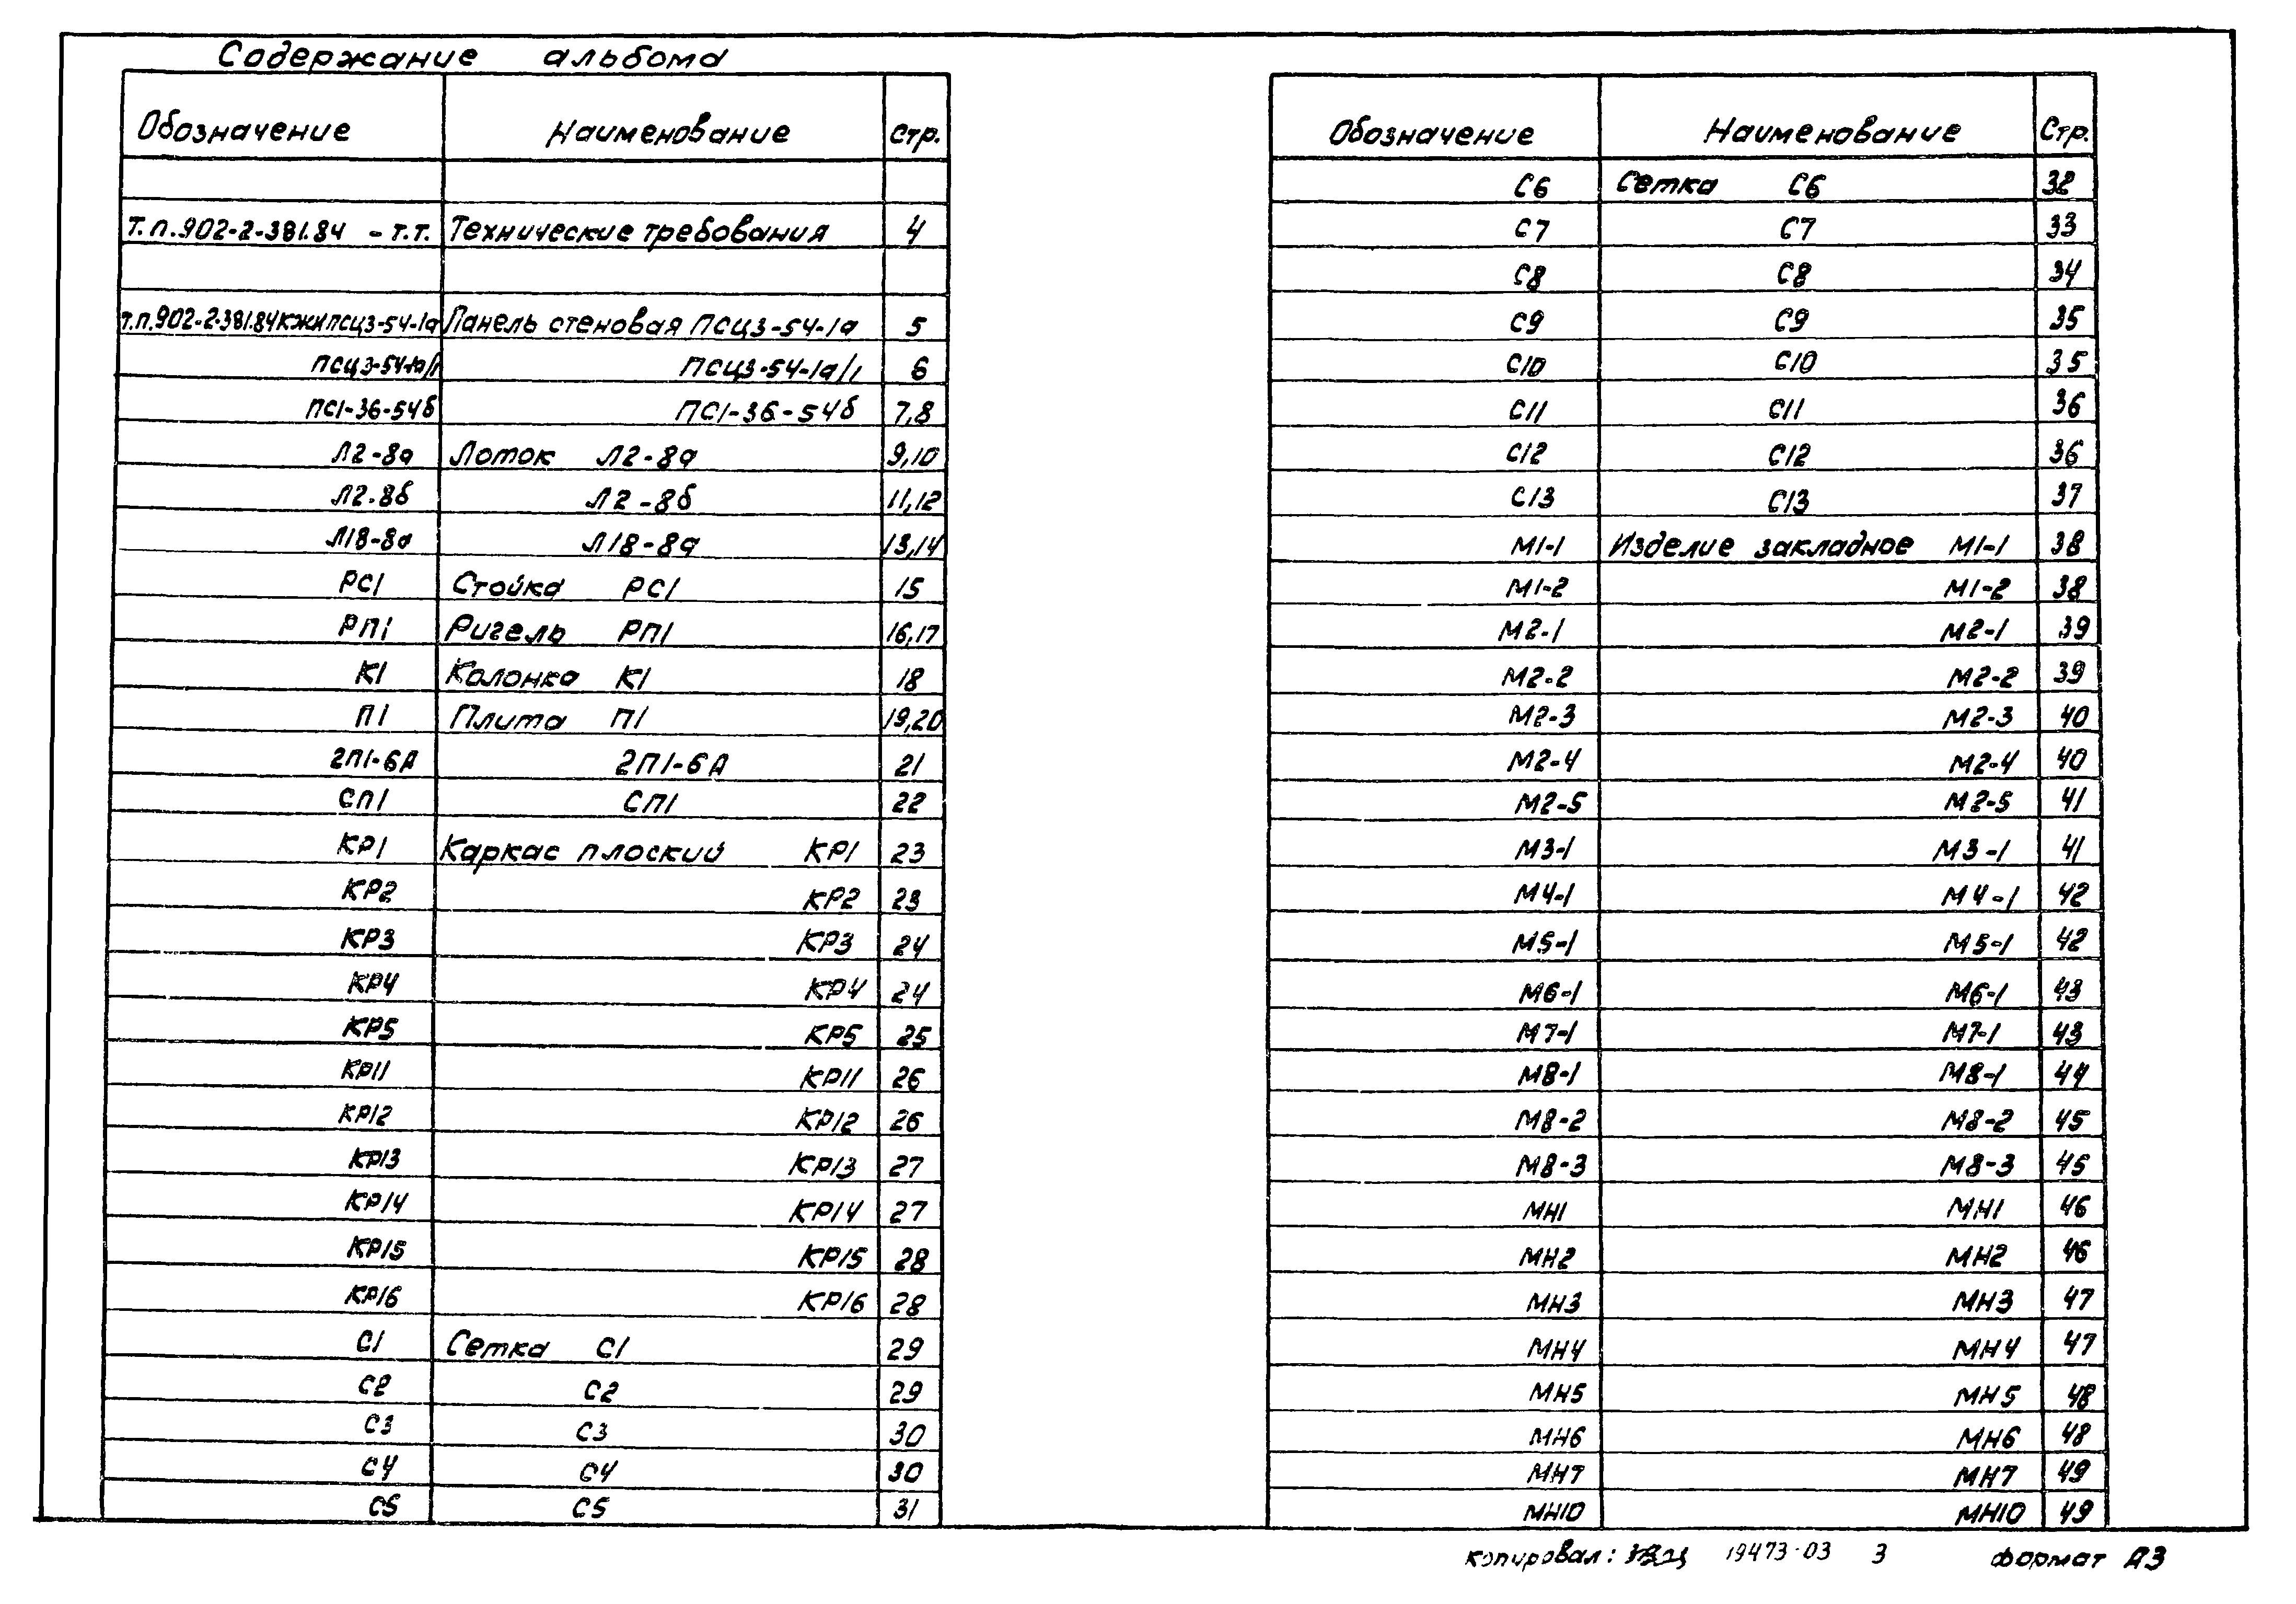 Содержание альбома
Обозначение Наименование Стр.
Т.п.902-2-381.84 - Т.Т. Технические требования 4
т.п.902-2-381.84КЖИПСЦ3-54-1а Панель стеновая ПСЦ3-54-1а 5
ПСЦ3-54-1а/1 ПСЦ3-54-1а/1 6
ПС1-36-54б ПС1-36-54б 7,8
Л2-8а Лоток Л2-8а 9,10
Л2-8б Л2-8б 11,12
Л18-8а Л18-8а 13,14
РС1 Стойка РС1 15
РП1 Ригель РП1 16,17
К1 Колонка К1 18
П1 Плита П1 19,20
2П1-6А 2П1-6А 21
СП1 СП1 22
КР1 Каркас плоский КР1 23
КР2 КР2 23
КР3 КР3 24
КР4 КР4 24
КР5 КР5 25
КР11 КР11 26
КР12 КР12 26
КР13 КР13 27
КР14 КР14 27
КР15 КР15 28
КР16 КР16 28
С1 Сетка С1 29
С2 С2 29
С3 С3 30
С4 С4 30
С5 С5 31
Обозначение Наименование Стр.
С6 Сетка С6 32
С7 С7 33
С8 С8 34
С9 С9 35
С10 С10 35
С11 С11 36
С12 С12 36
С13 С13 37
М1-1 Изделие закладное М1-1 38
М1-2 М1-2 38
М2-1 М2-1 39
М2-2 М2-2 39
М2-3 М2-3 40
М2-4 М2-4 40
М2-5 М2-5 41
М3-1 М3-1 41
М4-1 М4-1 42
М5-1 М5-1 42
М6-1 М6-1 43
М7-1 М7-1 43
М8-1 М8-1 44
М8-2 М8-2 45
М8-3 М8-3 45
МН1 МН1 46
МН2 МН2 46
МН3 МН3 47
МН4 МН4 47
МН5 МН5 48
МН6 МН6 48
МН7 МН7 49
МН10 МН10 49
копировал: 19473-03 3 формат А3